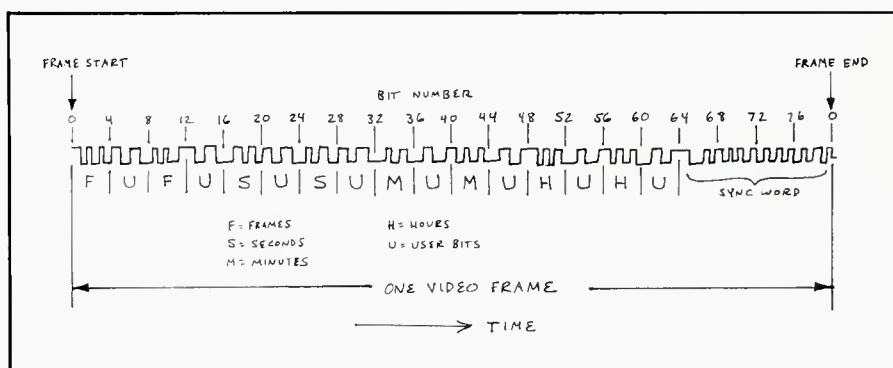 FRAME START
FRAME END
BIT NUMBER
0 4 8 12 16 20 24 28 32 36 40 44 48 52 56 60 64 68 72 76 0
F U F U S U S U M U M U H U H U
SYNC WORD
F = FRAMES
H = HOURS
S = SECONDS
U = USER BITS
M = MINUTES
ONE VIDEO FRAME
TIME